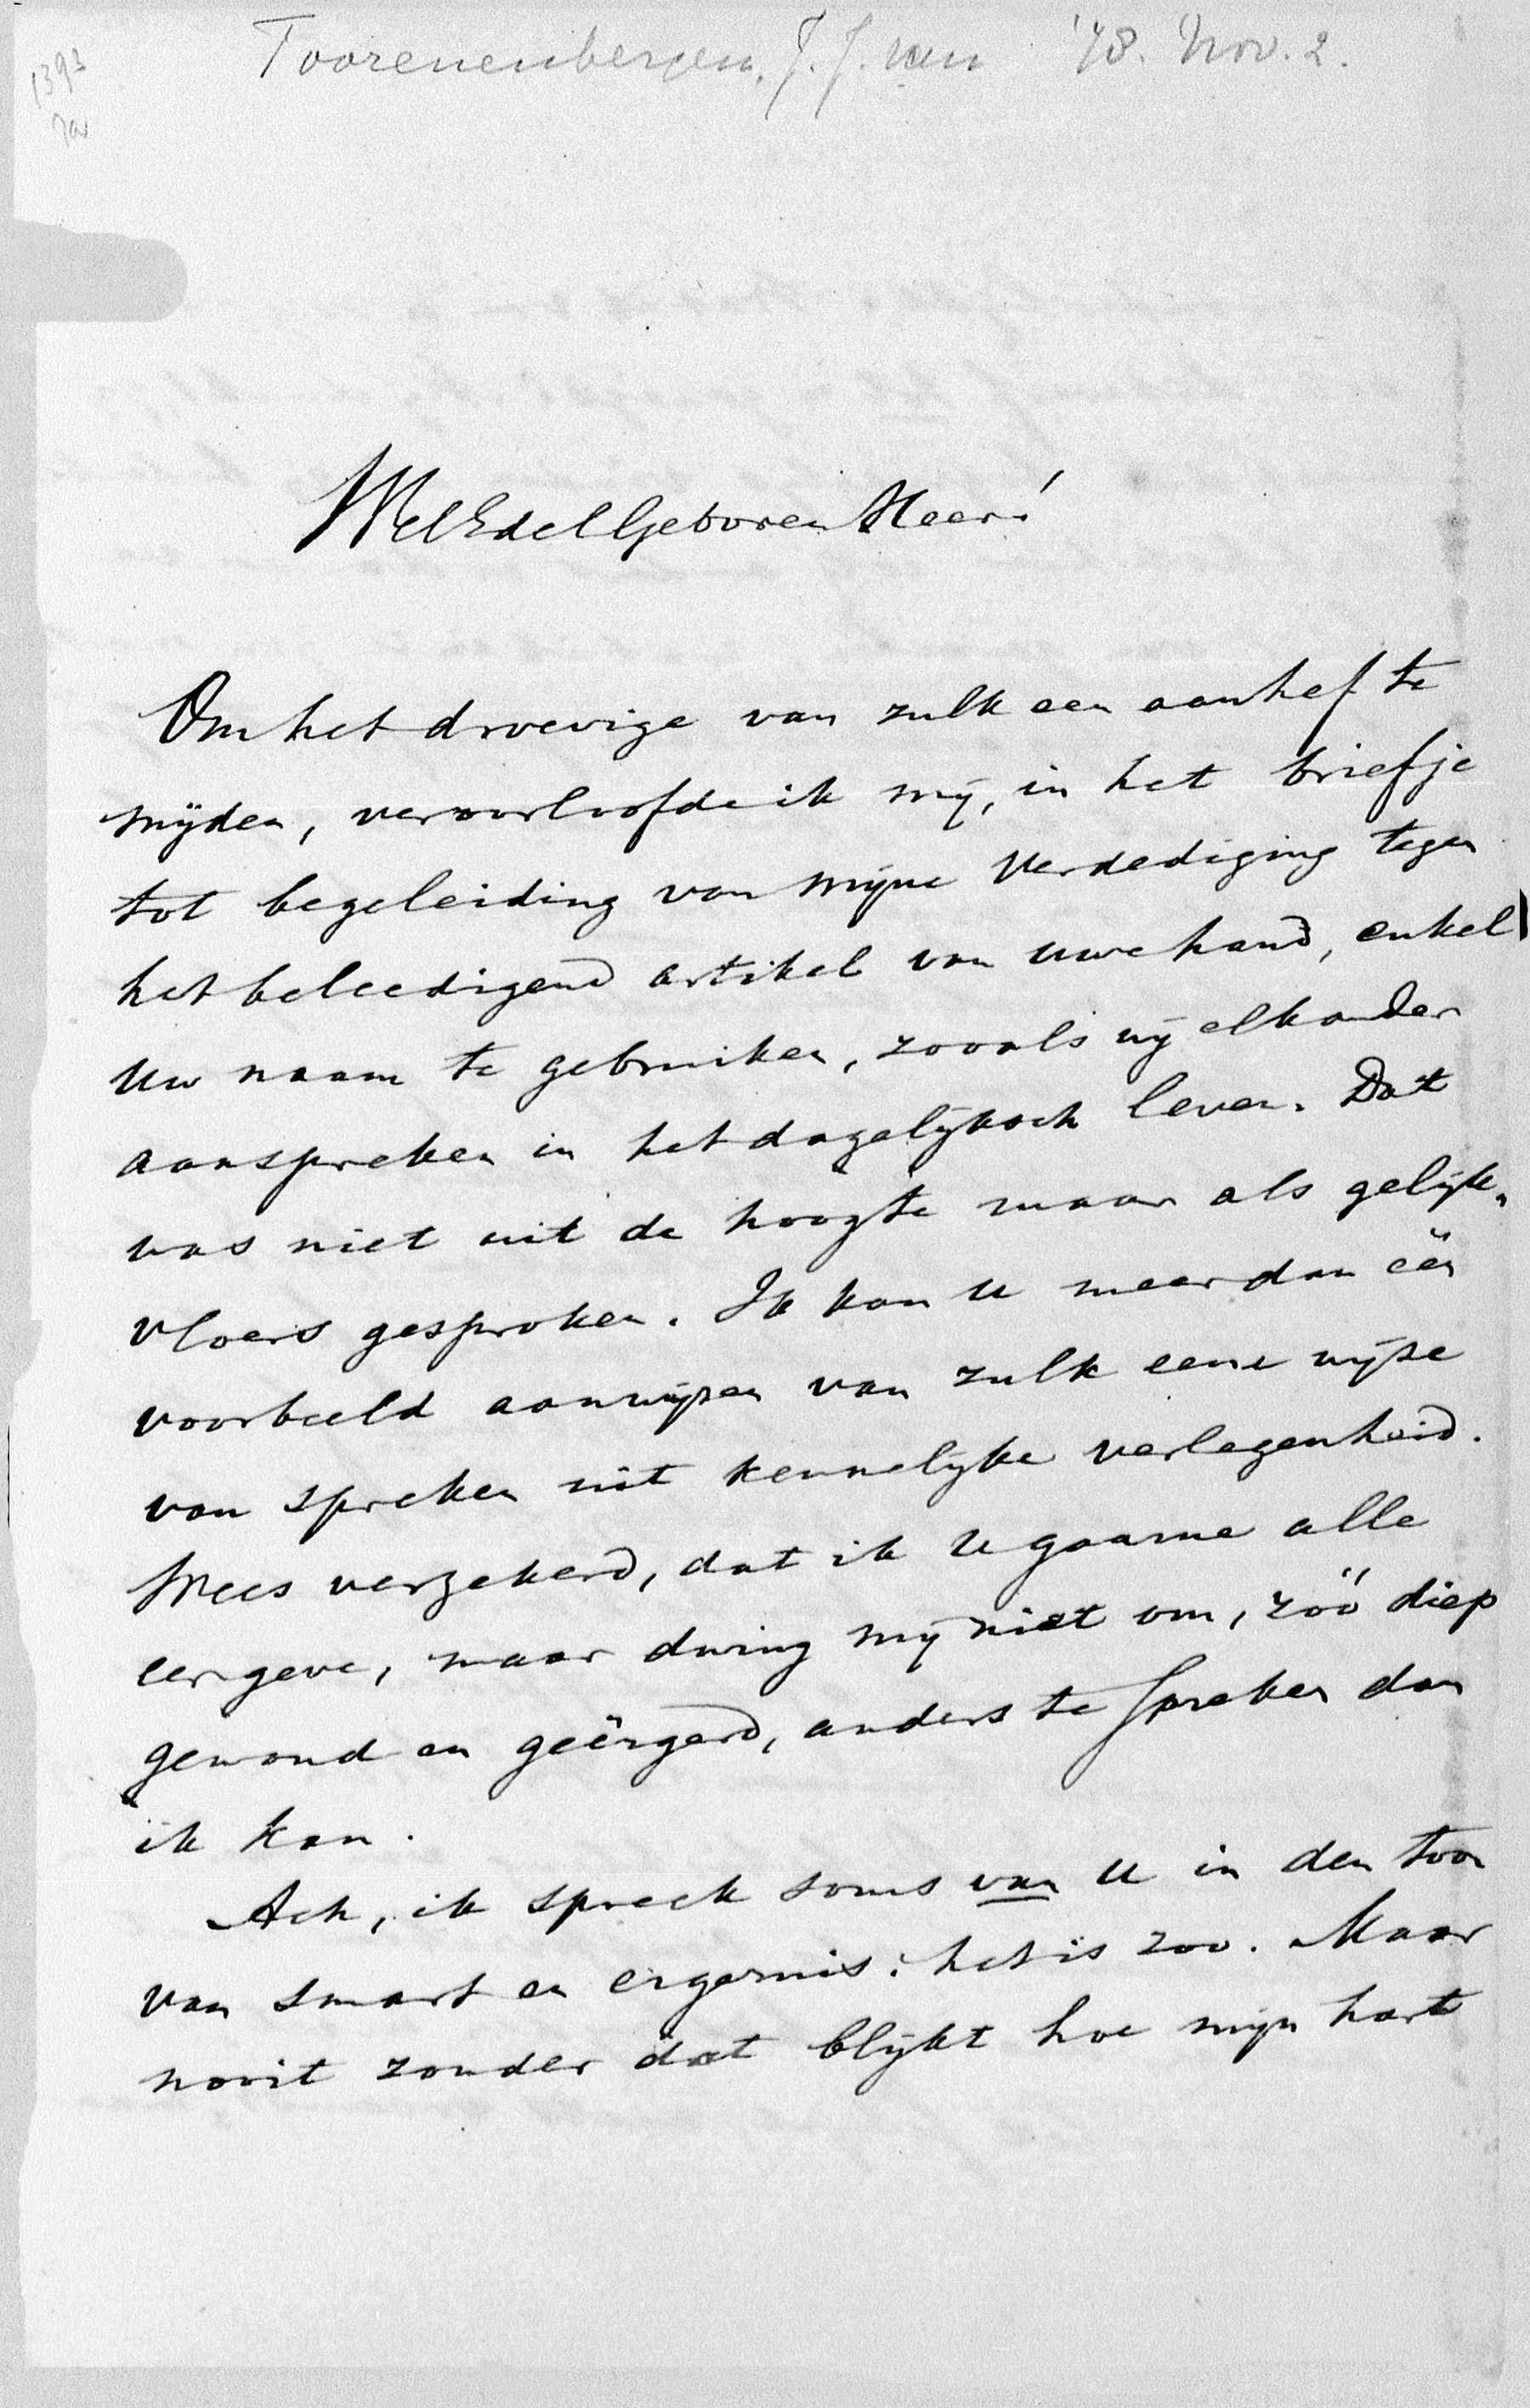 Toorenenbergen, J. J. van '78. Nov. 2.
1393
WelEdelGeboren Heer!
Om het droevige van zulk een aanhef te
mijden, veroorloofde ik mij, in het briefje
tot begeleiding van mijne Verdediging tegen
het beleedigend artikel van uwe hand, enkel
Uw naam te gebruiken, zooals wij elkander
aanspreken in het dagelijksch leven. Dat
was niet uit de hoogte maar als gelijk-
vloers gesproken. Ik kan U meer dan één
voorbeeld aanwijzen van zulk eene wijze
van spreken uit kennelijke verlegenheid.
Wees verzekerd, dat ik U gaarne alle
eer geve, maar dwing mij niet om, zóó diep
gewond en geërgerd, anders te spreken dan
ik kan.
Ach, ik spreek soms van U in den toon
van smart en ergernis: het is zoo. Maar
nooit zonder dat blijkt hoe mijn hart